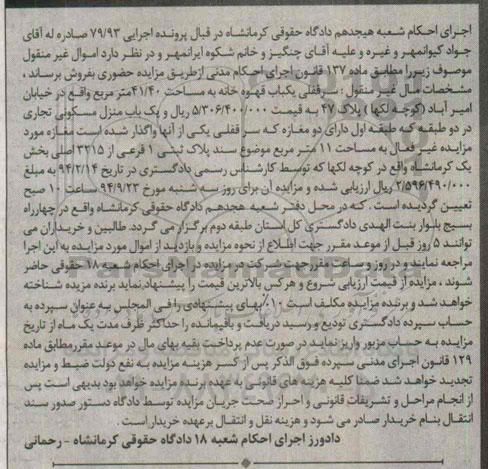 اجرای احکام شعبه هیجدهم دادگاه حقوقی کرمانشاه در قبال پرونده اجرایی ۷۹/۹۳ صادره له آقای
جواد کیوانمهر و غیره و علیه آقای چنگیز و خانم شکوه ایرانمهر و در نظر دارد اموال غیر منقول
موصوف زیر را مطابق ماده ۱۳۷ قانون اجرای احکام مدنی ازطریق مزایده حضوری بفروش برساند ،
مشخصات مال غیر منقول : سرقفلی یکباب قهوه خانه به مساحت ۴۱/۴۰متر مربع واقع در خیابان
امیر آباد (کوچه لکها ) پلاک ۴۷ به قیمت ۵/۳۰۶/۴۰۰/۰۰۰ ریال و یک باب منزل مسکونی تجاری
در دو طبقه که طبقه اول دارای دو مغازه که سر قفلی یکی از آنها واگذار شده است مغازه مورد
مزایده غیر فعال به مساحت ۱۱ متر مربع موضوع سند پلاک ثبتی ۱ فرعی از ۳۲۱۵ اصلی بخش
یک کرمانشاه واقع در کوچه لکها که توسط کارشناس رسمی دادگستری در تاریخ ۹۴/۲/۱۴ به مبلغ
۲/۵۹۶/۴۹۰/۰۰۰ ریال ارزیابی شده و مزایده آن برای روز سه شنبه مورخ ۹۴/۹/۲۳ ساعت ۱۰ صبح
تعیین گردیده است . که در محل دفتر شعبه هجدهم دادگاه حقوقی کرمانشاه واقع در چهارراه
بسیج بلوار بنت الهدی دادگستری کل استان طبقه دوم برگزار می گردد. طالبین و خریداران می
توانند ۵ روز قبل از موعد مقرر جهت اطلاع از نحوه مزایده و بازدید از اموال مورد مزایده به این اجرا
مراجعه نمایند و در روز و ساعت مقرر جهت شرکت در مزایده در اجرای احکام شعبه ۱۸ حقوقی حاضر
شوند ، مزایده از قیمت ارزیابی شروع و هرکس بالاترین قیمت را پیشنهاد نماید برنده مزیده شناخته
خواهد شد و برنده مزایده مکلف است ۱۰٪بهای پیشنهادی را فی المجلس به عنوان سپرده به
حساب سپرده دادگستری تودیع و رسید دریافت و باقیمانده را حداکثر ظرف مدت یک ماه از تاریخ
مزایده به حساب مزبور واریز نماید در صورت عدم پرداخت بقیه بهای مال در موعد مقرر مطابق ماده
۱۲۹ قانون اجرای مدنی سپرده فوق الذکر پس از کسر هزینه مزایده به نفع دولت ضبط و مزایده
تجدید خواهد شد ضمنا کلیه هزینه های قانونی به عهده برنده مزایده خواهد بود بدیهی است پس
از انجام مراحل و تشریفات قانونی و احراز صحت جریان مزایده توسط دادگاه دستور صدور سند
انتقال بنام خریدار صادر می شود و هزینه نقل و انتقال برعهده خریدار است .
دادورز اجرای احکام شعبه ۱۸ دادگاه حقوقی کرمانشاه - رحمانی
ParsNamadData